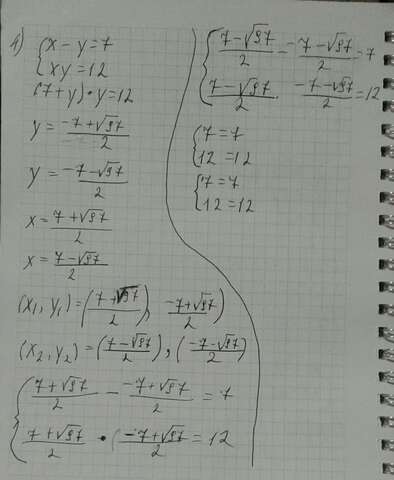 1) { x - y = 7
{ xy = 12
(7 + y) · y = 12
y = (-7 + √97)/2
y = (-7 - √97)/2
x = (7 + √97)/2
x = (7 - √97)/2
(x₁, y₁) = ((7 + √97)/2), (-7 + √97)/2)
(x₂, y₂) = ((7 - √97)/2), ((-7 - √97)/2)
{ (7 + √97)/2 - (-7 + √97)/2 = 7
{ (7 + √97)/2 · ( (-7 + √97)/2 = 12
{ (7 - √97)/2 - (-7 - √97)/2 = 7
{ (7 - √97)/2 · (-7 - √97)/2 = 12
{ 7 = 7
{ 12 = 12
{ 7 = 7
{ 12 = 12